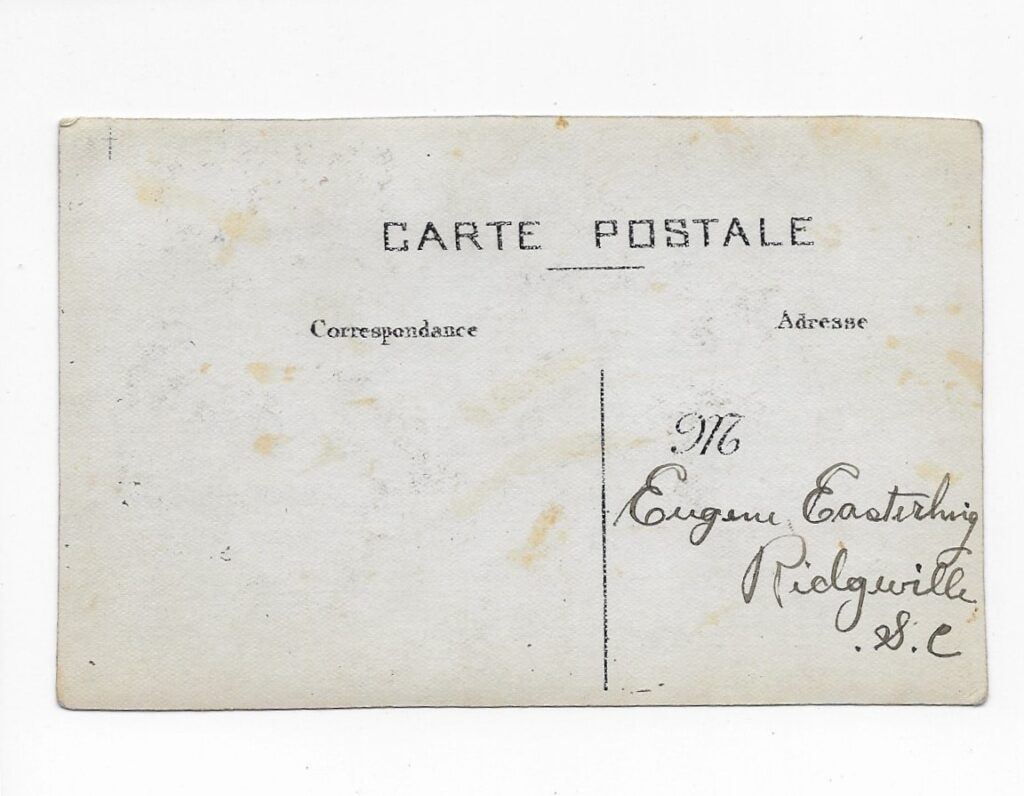 CARTE POSTALE
Correspondance
Adresse
M
Eugene Easterling
Ridgeville
S.C